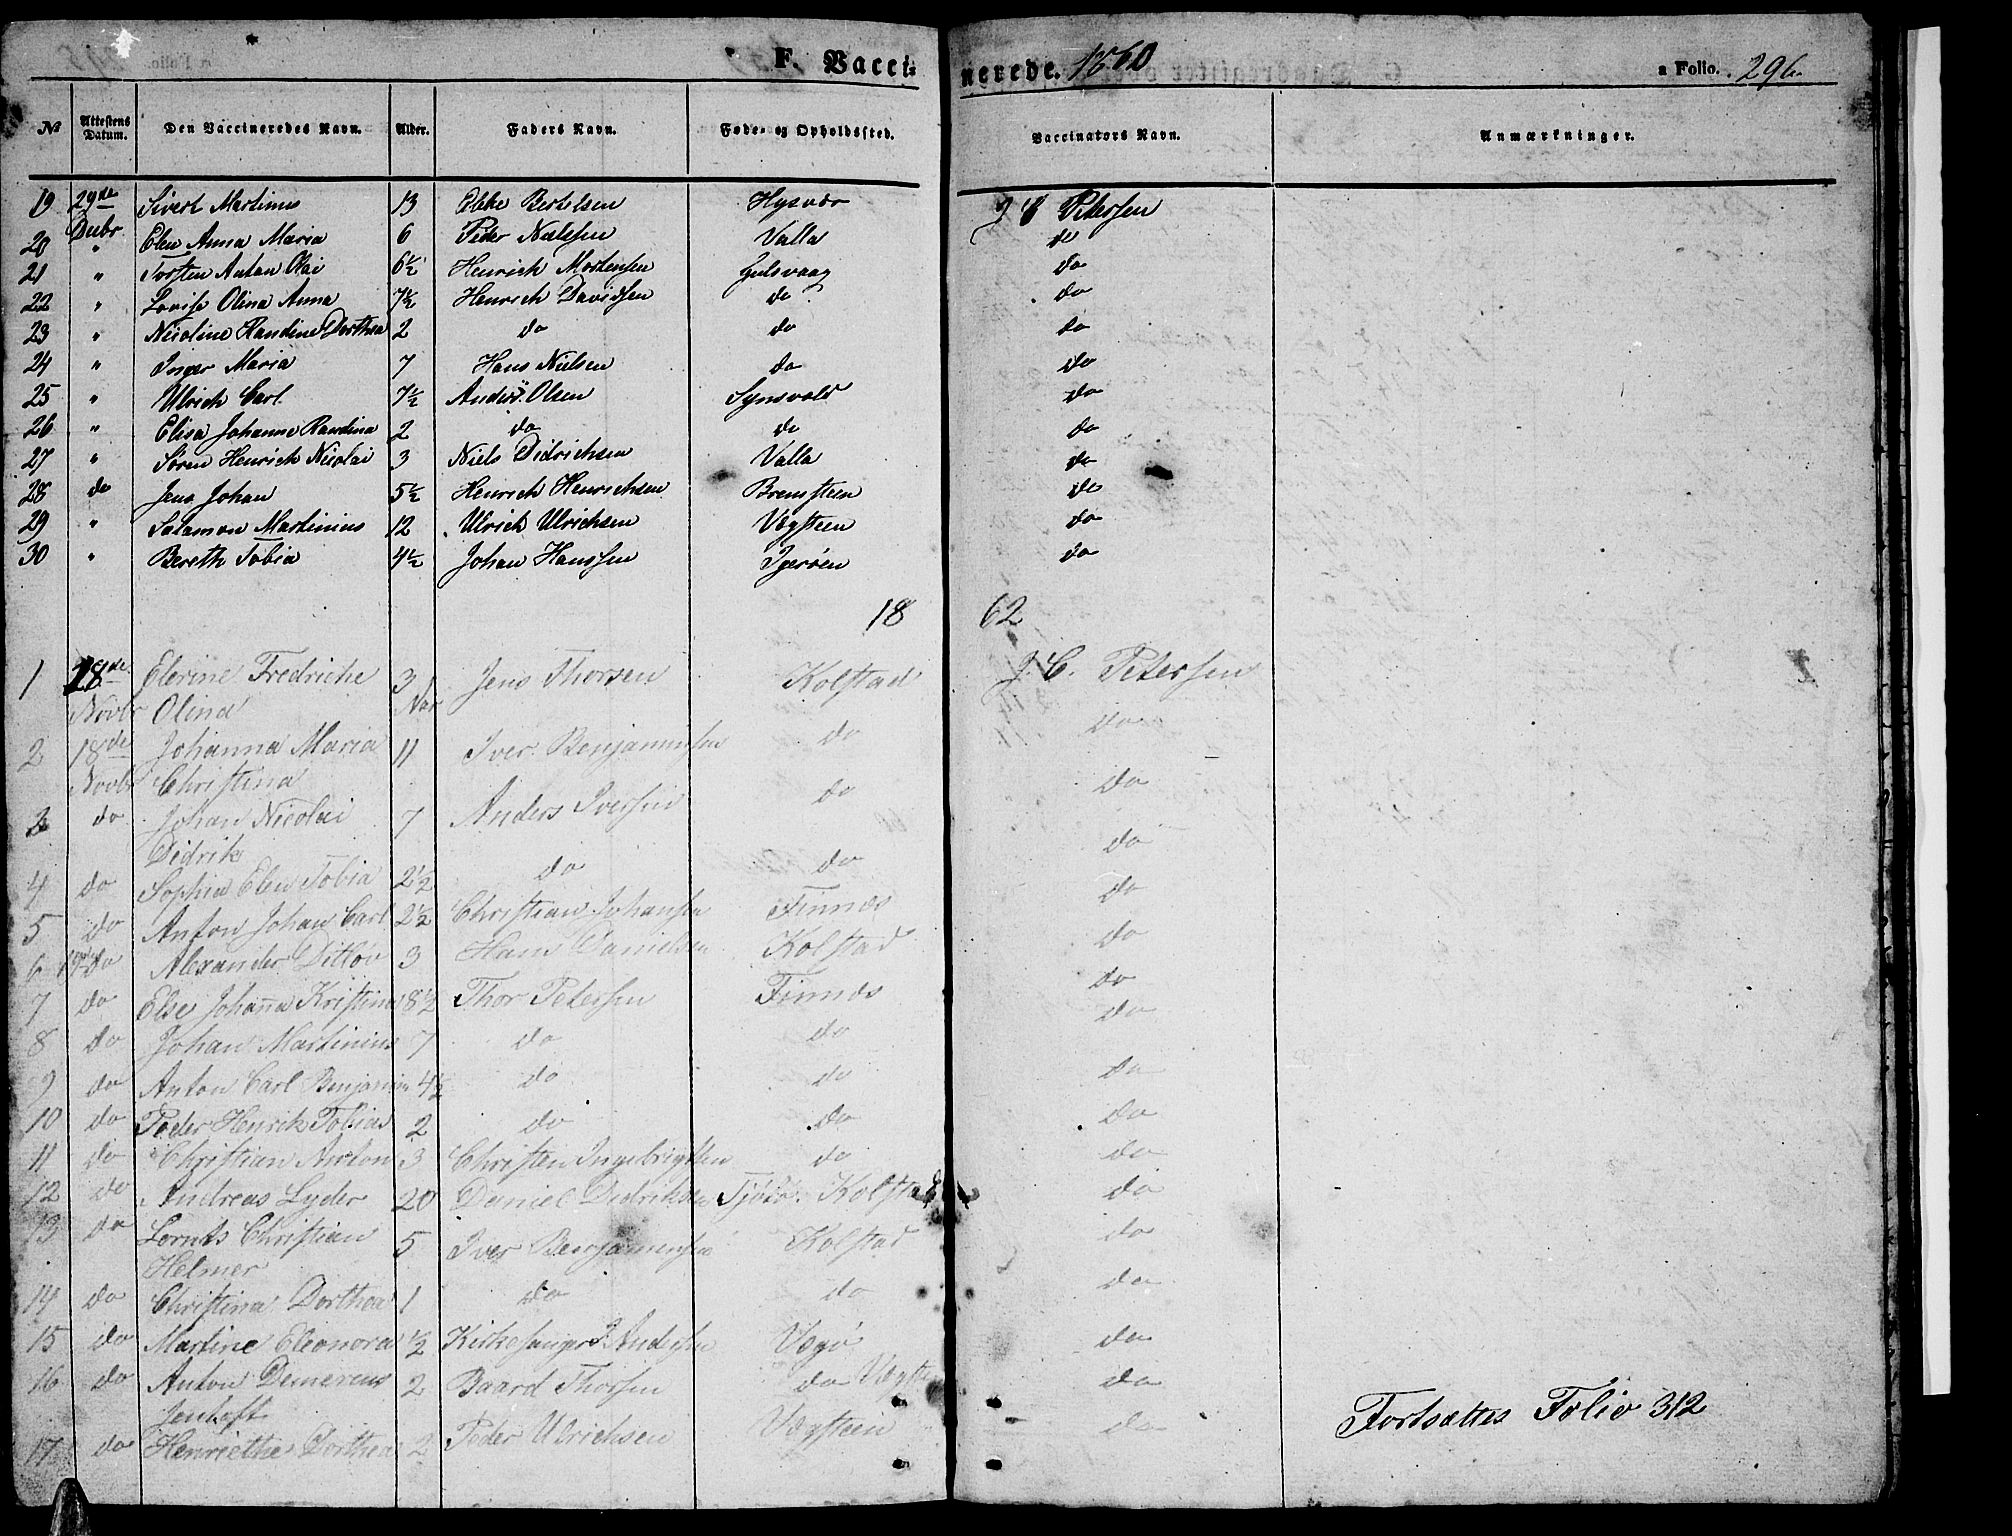 F. Vaccinerede. 1860
a Folio. 296.
No Attestens Datum. Den Vaccineredes Navn. Alder. Faders Navn. Føde- og Opholdssted. Vaccinators Navn. Anmærkninger.
19 29de Decbr Sivert Martinus 13 Ebbe Bertelsen Hysvær J C Petersen
20 " Elen Anna Maria 6 Peder Nielssen Valla do
21 " Torsten Anton Olai 6½ Henrich Mortensen Gulsvaag do
22 " Lovise Olina Anna 7½ Henrich Davidsen do do
23 " Nicoline Randine Dorthea 2 do do do
24 " Inger Maria 7 Hans Nielsen do do
25 " Ulrich Carl 7½ Anders Olsen do
26 " Elisa Johanne Randina 2 do do do
27 " Søren Henrich Nicolai 3 Niels Didrichsen Valla do
28 do Jens Johan 5½ Henrich Henrichsen Bremsteen do
29 " Salamon Martinius 12 Ulrich Ulrichsen Vegsteen do
30 " Bereth Tobia 4½ Johan Hanssen Igerøen do
1862
1 18de Novbr Elerine Fredriche Olina 3 Aar Jens Thorsen Kolstad J. C. Petersen
2 18de Novbr Johanna Maria Christina 11 Iver Benjaminsen do do
3 do Johan Nicolai Didrik 7 Anders Iversen do do
4 do Sophia Elen Tobia 2½ do do do
5 do Anton Johan Carl 2½ Christian Johansen Finnes do
6 19de do Alexander Ditløv 3 Hans Danielsen Kolstad do
7 do Else Johanna Kristina 8½ Thor Petersen Finnes do
8 do Johan Martinius 7 do do do
9 do Anton Carl Benjamin 4½ do do do
10 do Peder Henrik Tobias 2 do do do
11 do Christian Anton 3 Christen Ingebrigtsen do do
12 do Andreas Lyder 20 Daniel Didriksen Kolstad do
13 do Lornts Christian Helmer 5 Iver Benjaminsen Kolstad do
14 do Christina Dorthea 1 do do do
15 do Martine Eleonora ½ Kirkesanger J. Andersen Vegø do
16 do Anton Demerens Jentoft 2 Baard Thorsen do Vegst do
17 do Henriethe Dorthea 2 Peder Ulrichsen Vegsteen do
Fortsættes Folio 312